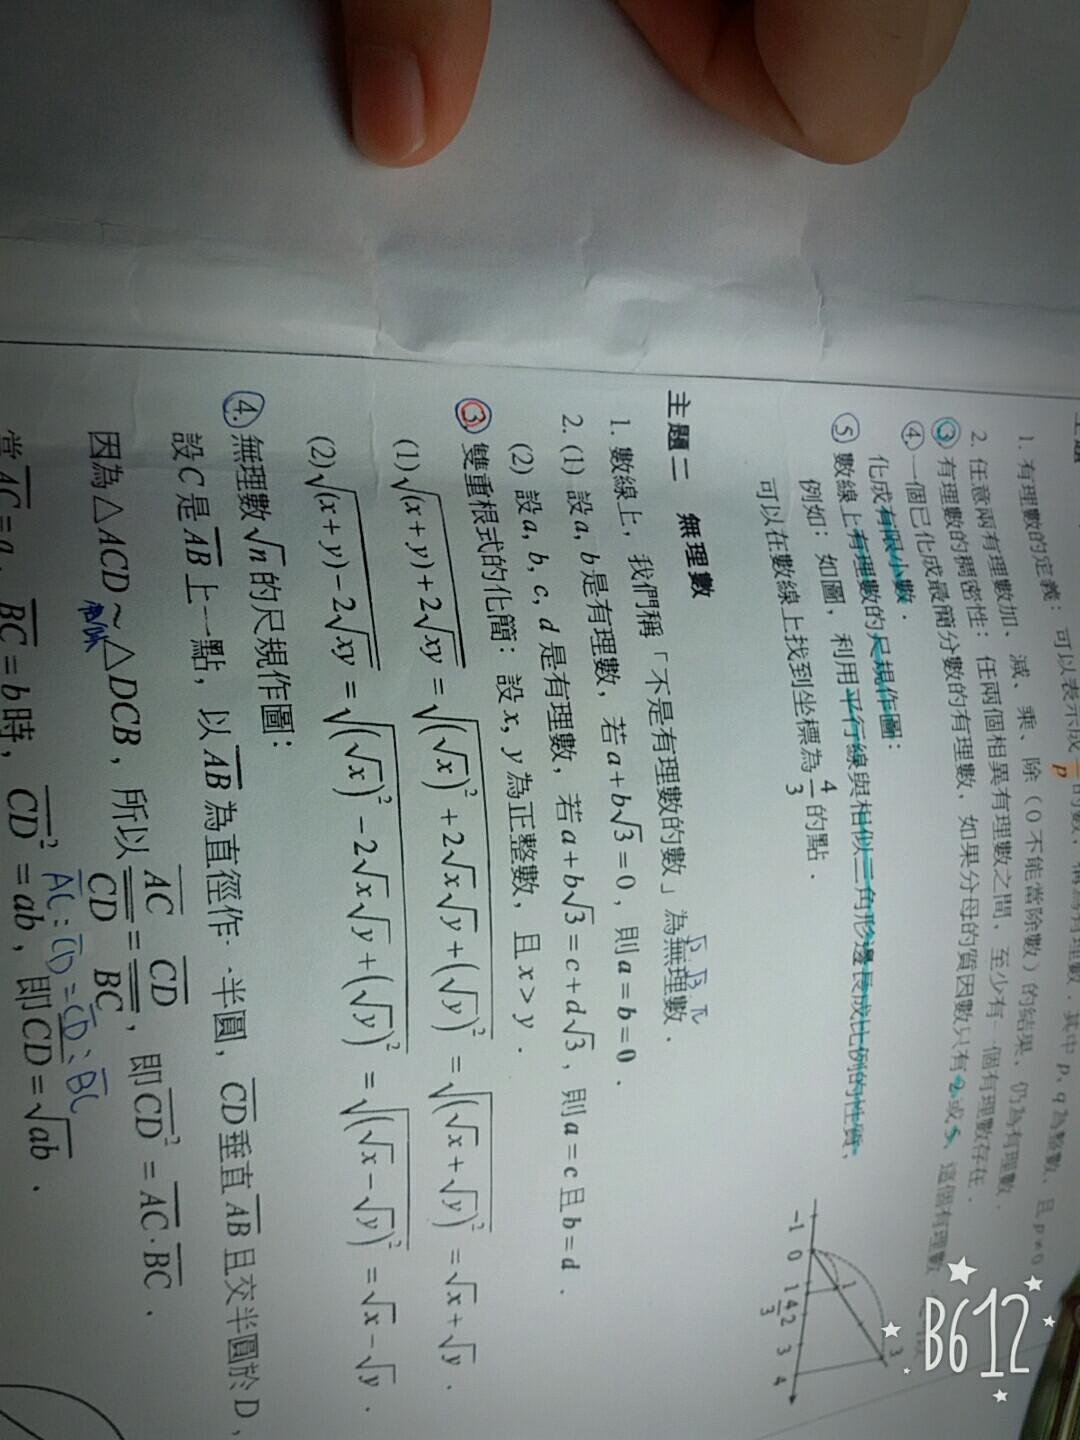 1. 有理數的定義：可以表示成 q/p 的數，稱為有理數，其中 p, q 為整數，且 p≠0
2. 任意兩有理數加、減、乘、除（0 不能當除數）的結果，仍為有理數．
③ 有理數的稠密性：任兩個相異有理數之間，至少有一個有理數存在．
④ 一個已化成最簡分數的有理數，如果分母的質因數只有 2 或 5，這個有理數
化成有限小數．
⑤ 數線上有理數的尺規作圖：
例如：如圖，利用平行線與相似三角形邊長成比例的性質，
可以在數線上找到坐標為 4/3 的點．
-1 0 1 4/3 2 3 4
1
3
主題二 無理數
√2, √3, π
1. 數線上，我們稱「不是有理數的數」為無理數．
2. (1) 設 a, b 是有理數，若 a+b√3=0，則 a=b=0．
(2) 設 a, b, c, d 是有理數，若 a+b√3=c+d√3，則 a=c 且 b=d．
③ 雙重根式的化簡：設 x, y 為正整數，且 x>y．
(1) √((x+y)+2√(xy)) = √((√x)²+2√x√y+(√y)²) = √((√x+√y)²) = √x+√y．
(2) √((x+y)-2√(xy)) = √((√x)²-2√x√y+(√y)²) = √((√x-√y)²) = √x-√y．
④ 無理數√n的尺規作圖：
設 C 是 AB 上一點，以 AB 為直徑作一半圓，CD 垂直 AB 且交半圓於 D，
因為△ACD~△DCB，所以 AC/CD = CD/BC，即 CD² = AC·BC．
AC：CD = CD：BC
當 AC=a，BC=b 時，CD²=ab，即 CD=√ab．
B612